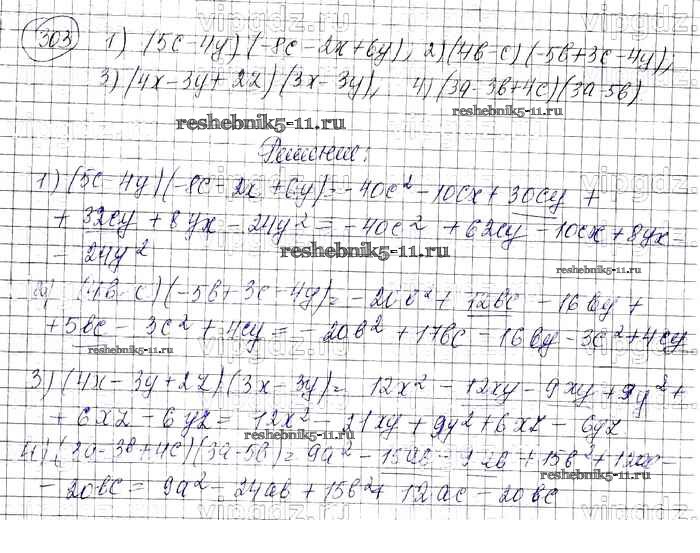 303 1) (5c-4y)(-8c-2x+6y), 2) (4b-c)(-5b+3c-4y),
3) (4x-3y+2z)(3x-3y), 4) (3a-3b+4c)(3a-5b)
reshebnik5-11.ru
reshebnik5-11.ru
Решение:
1) (5c-4y)(-8c-2x+6y)=-40c²-10cx+30cy+
+32cy+8yx-24y²=-40c²+62cy-10cx+8yx-
-24y²
reshebnik5-11.ru
reshebnik5-11.ru
2) (4b-c)(-5b+3c-4y)=-20b²+12bc-16by+
+5bc-3c²+4cy=-20b²+17bc-16by-3c²+4cy
reshebnik5-11.ru
3) (4x-3y+2z)(3x-3y)=12x²-12xy-9xy+9y²+
+6xz-6yz=12x²-21xy+9y²+6xz-6yz
reshebnik5-11.ru
4) (3a-3b+4c)(3a-5b)=9a²-15ab-9ab+15b²+12ac-
reshebnik5-11.ru
-20bc=9a²-24ab+15b²+12ac-20bc
vipgdz.com